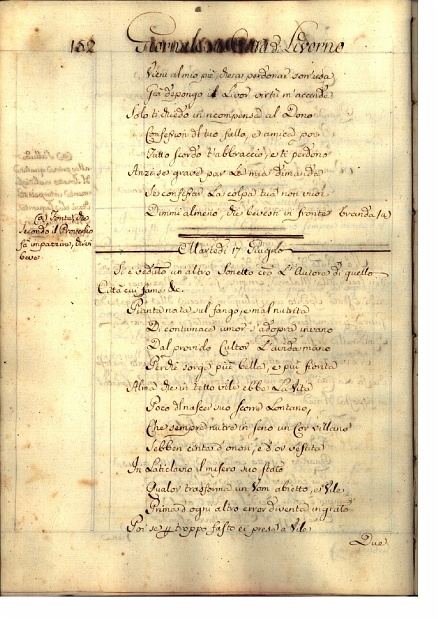 152
Giornale della Città di Livorno
Vieni al mio piè, che a perdonar son usa
Già depongo il Livor virtù m'accende
Solo ti chiedo in ricompensa al Dono
Confession del tuo fallo, e amica poi
Tutto scordo t'abbraccio, e ti perdono
Anzi se grave par Le mia dimanda
Se confessar La colpa tua non vuoi
Dimmi almeno, che bevesti in fronte branda (a)
(a) Fonte, che
secondo il Proverbio
fa impazzire, chi vi
beve
Martedì 17 Giugno
Si è veduto un altro Sonetto con L'Autore di quello
Città cui fama &c.
Pianta nata sul fango, e mal nutrita
Di contumace umor s'adopra invano
Dal provvido Cultor L'avida mano
Perchè sorga più bella, e più fiorita
Alma che in tetto vile ebbe La Vita
Poco dl nascer suo scorre Lontano,
Che sempre nutre in seno un Cor villano
Sebben cinta d'onori, e d'or vestita
In Laticlavio il misero suo stato
Qualor trasforma un Vom abietto, e Vile
Prima d'ogni altro error diventa ingrato
Poi se p troppo fasto ei prese a Vile
Due